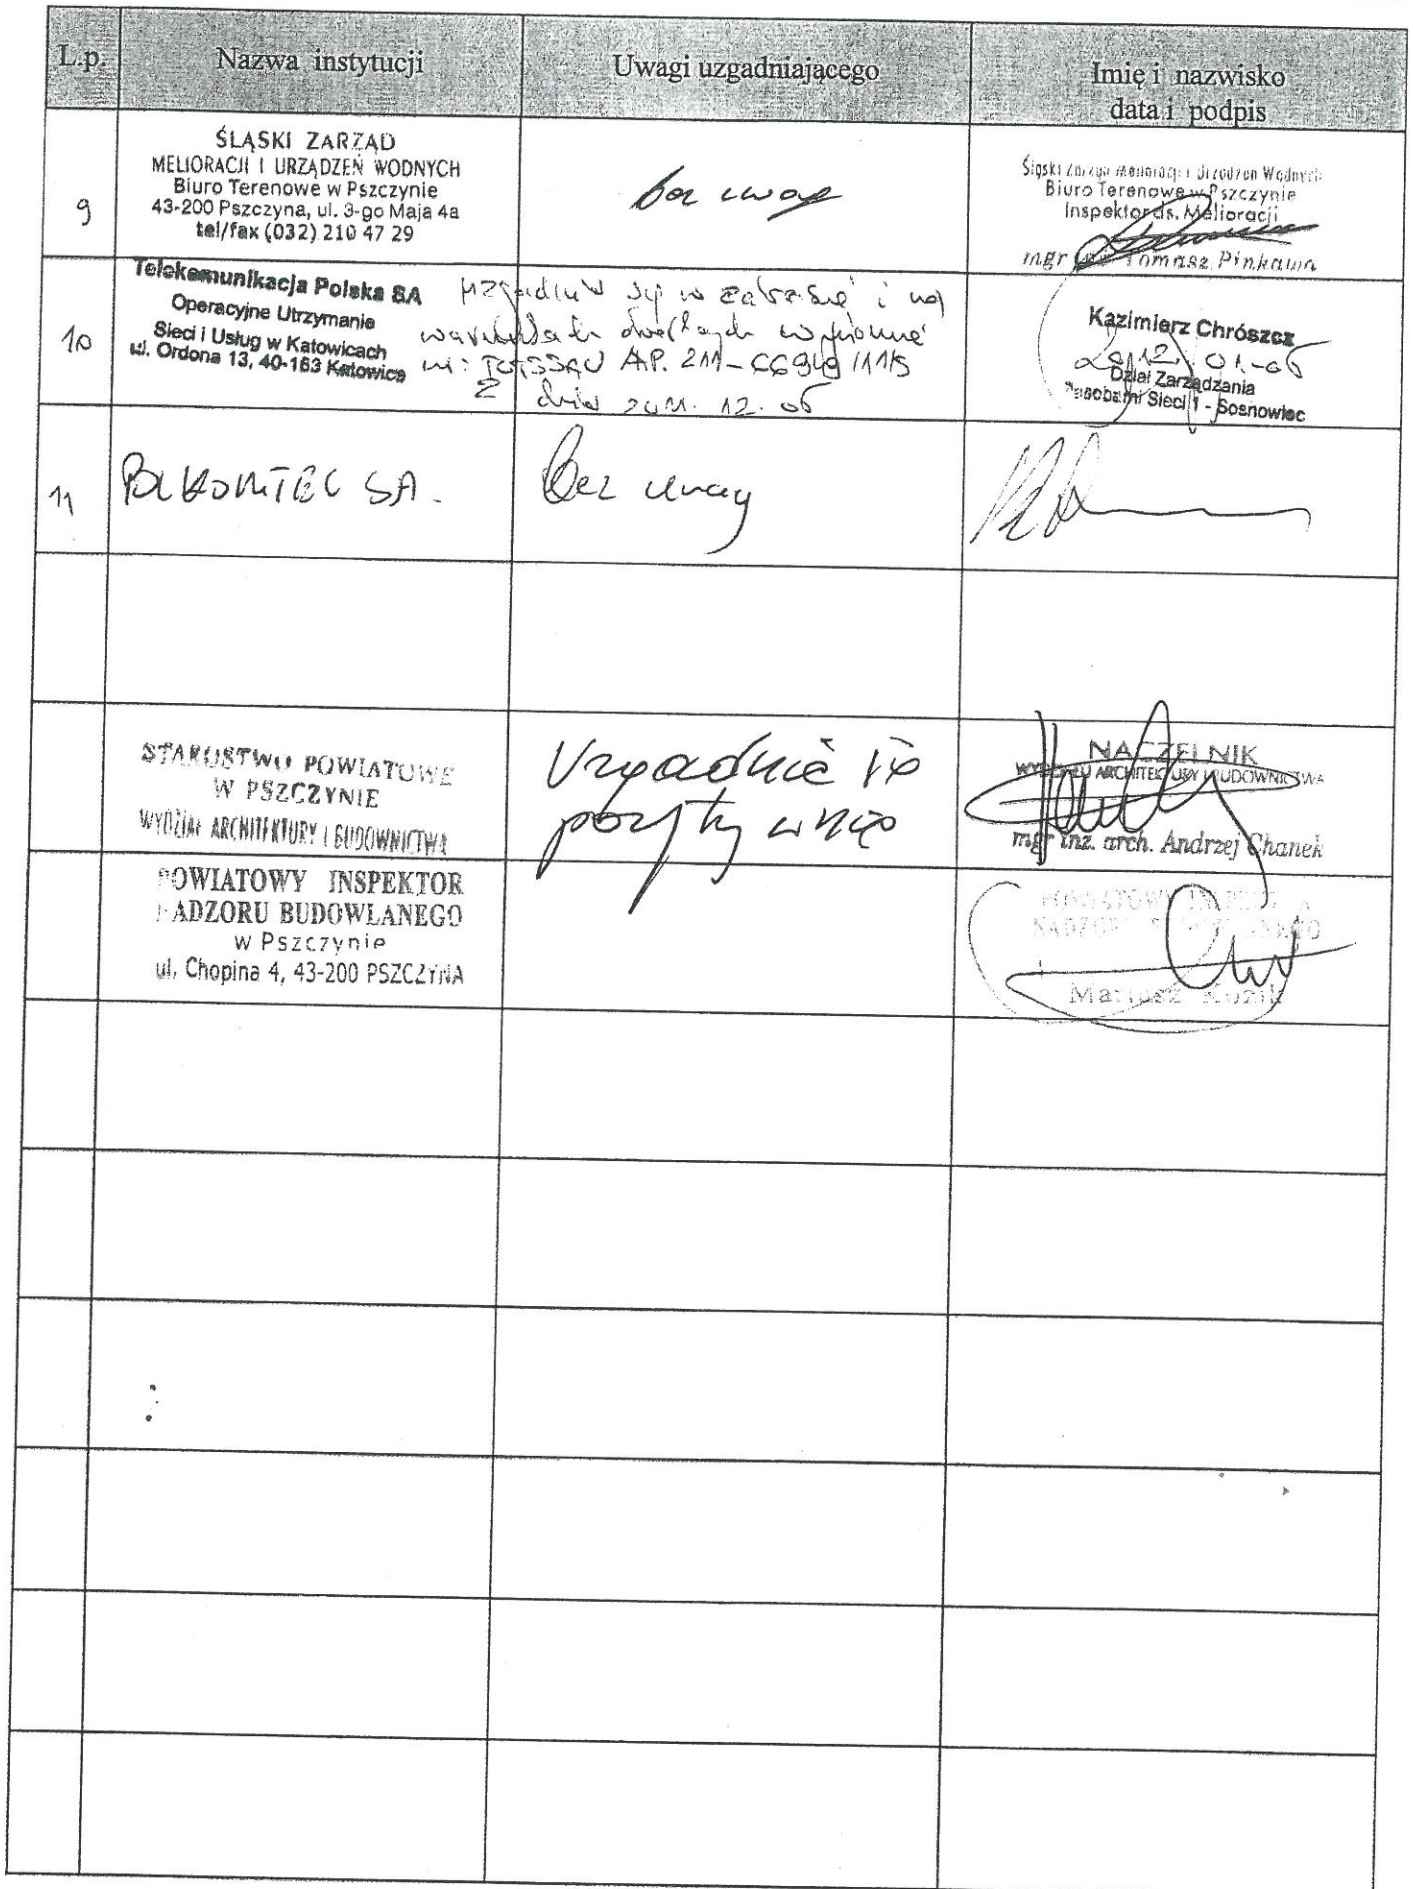 L.p.
Nazwa instytucji
Uwagi uzgadniającego
Imię i nazwisko
data i podpis
9
ŚLĄSKI ZARZĄD
MELIORACJI I URZĄDZEŃ WODNYCH
Biuro Terenowe w Pszczynie
43-200 Pszczyna, ul. 3-go Maja 4a
tel/fax (032) 210 47 29
bez uwag
Śląski Zarząd Melioracji i Urządzeń Wodnych
Biuro Terenowe w Pszczynie
Inspektor ds. Melioracji
mgr Tomasz Pinkawa
10
Telekomunikacja Polska SA
Operacyjne Utrzymanie
Sieci i Usług w Katowicach
ul. Ordona 13, 40-163 Katowice
się w zakresie i na
warunkach
A.P. 211-
z dnia 12.06
Kazimierz Chrószcz
Dział Zarządzania
Zasobami Sieci 1 - Sosnowiec
11
SA.
Bez uwag
STAROSTWO POWIATOWE
W PSZCZYNIE
WYDZIAŁ ARCHITEKTURY I BUDOWNICTWA
Uzgadnia się
pozytywnie
NACZELNIK
WYDZIAŁU ARCHITEKTURY I BUDOWNICTWA
mgr inż. arch. Andrzej Chanek
POWIATOWY INSPEKTOR
NADZORU BUDOWLANEGO
w Pszczynie
ul. Chopina 4, 43-200 PSZCZYNA
POWIATOWY INSPEKTOR
NADZORU BUDOWLANEGO
Mariusz Kozik